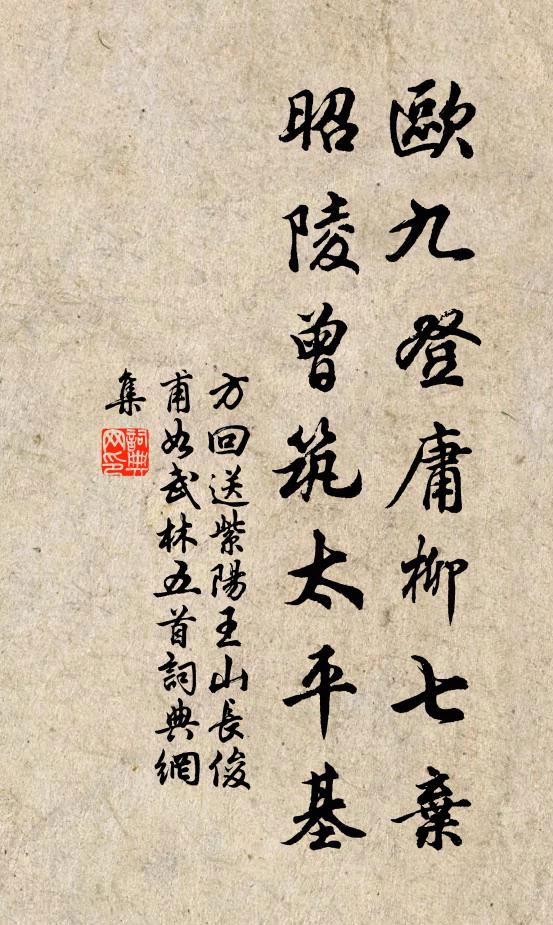 歐九登庸柳七棄
昭陵曾筑太平基
方回送紫陽王山長俊
甫如武林五首詞典網
集
詞典網印